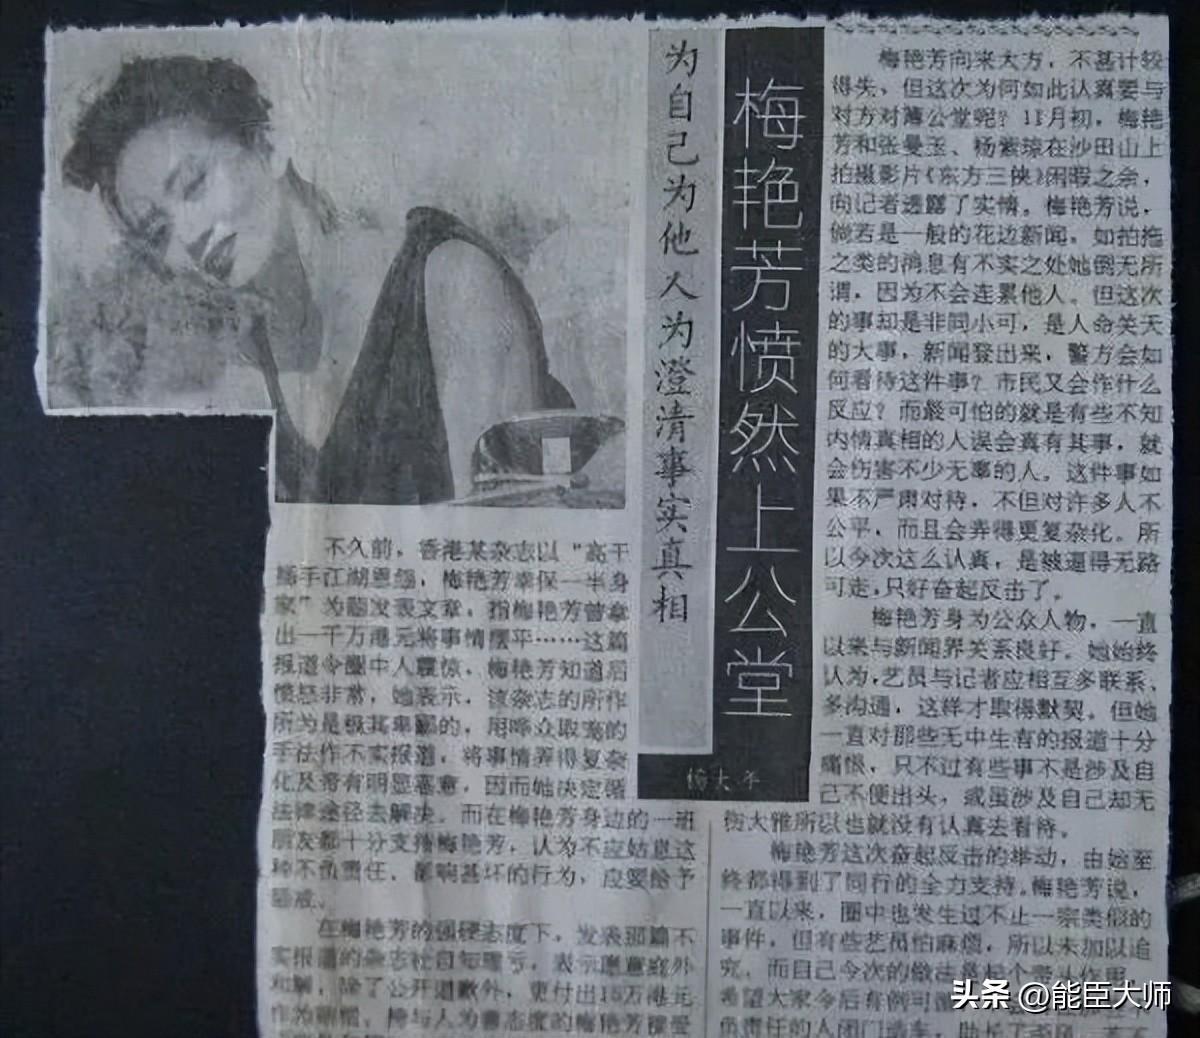 梅艳芳愤然上公堂
为自己为他人为澄清事实真相
杨大年
不久前，香港某杂志以“高干
插手江湖恩怨，梅艳芳幸保一半身
家”为题发表文章，指梅艳芳曾拿
出一千万港元将事情摆平……这篇
报道令圈中人震惊，梅艳芳知道后
愤怒非常，她表示，该杂志的所作
所为是极其卑鄙的，用哗众取宠的
手法作不实报道，将事情弄得复杂
化及带有明显恶意，因而她决定循
法律途径去解决。而在梅艳芳身边的一班
朋友都十分支持梅艳芳，认为不应姑息这
种不负责任、影响甚坏的行为，应要给予
惩戒。
在梅艳芳的强硬态度下，发表那篇不
实报道的杂志社自知理亏，表示愿意庭外
和解，除了公开道歉外，更付出15万港元
作为赔偿，抱与人为善态度的梅艳芳接受
梅艳芳向来大方，不甚计较
得失，但这次为何如此认真要与
对方对薄公堂呢？11月初，梅艳
芳和张曼玉、杨紫琼在沙田山上
拍摄影片《东方三侠》闲暇之余，
向记者透露了实情。梅艳芳说，
倘若是一般的花边新闻，如拍拖
之类的消息有不实之处她倒无所
谓，因为不会连累他人。但这次
的事却是非同小可，是人命关天
的大事，新闻登出来，警方会如
何看待这件事？市民又会作什么
反应？而最可怕的就是有些不知
内情真相的人误会真有其事，就
会伤害不少无辜的人。这件事如
果不严肃对待，不但对许多人不
公平，而且会弄得更复杂化。所
以今次这么认真，是被逼得无路
可走，只好奋起反击了。
梅艳芳身为公众人物，一直
以来与新闻界关系良好。她始终
认为，艺员与记者应相互多联系、
多沟通，这样才取得默契。但她
一直对那些无中生有的报道十分
痛恨，只不过有些事不是涉及自
己不便出头，或虽涉及自己却无
伤大雅所以也就没有认真去看待。
梅艳芳这次奋起反击的举动，由始至
终都得到了同行的全力支持。梅艳芳说，
一直以来，圈中也发生过不止一宗类似的
事件，但有些艺员怕麻烦，所以未加以追
究，而自己今次的做法是起个带头作用，
希望大家今后有例可
负责任的人闭门造车，助长了
头条 @能臣大师